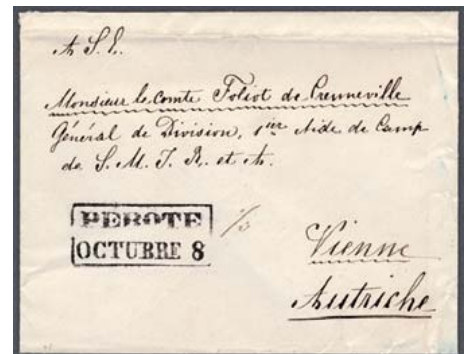 A S. E.
Monsieur le Comte Foliot de Crenneville
Général de Division, 1ier Aide de Camp
de S. M. I. R. et A.
PEROTE
OCTUBRE 8
Vienne
Autriche